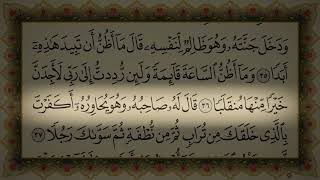 وَدَخَلَ جَنَّتَهُۥ وَهُوَ ظَالِمٌ لِّنَفْسِهِۦ قَالَ مَآ أَظُنُّ أَن تَبِيدَ هَٰذِهِۦٓ
أَبَدًا ٣٥ وَمَآ أَظُنُّ ٱلسَّاعَةَ قَآئِمَةً وَلَئِن رُّدِدتُّ إِلَىٰ رَبِّي لَأَجِدَنَّ
خَيْرًا مِّنْهَا مُنقَلَبًا ٣٦ قَالَ لَهُۥ صَاحِبُهُۥ وَهُوَ يُحَاوِرُهُۥٓ أَكَفَرْتَ
بِٱلَّذِي خَلَقَكَ مِن تُرَابٍ ثُمَّ مِن نُّطْفَةٍ ثُمَّ سَوَّىٰكَ رَجُلًا ٣٧